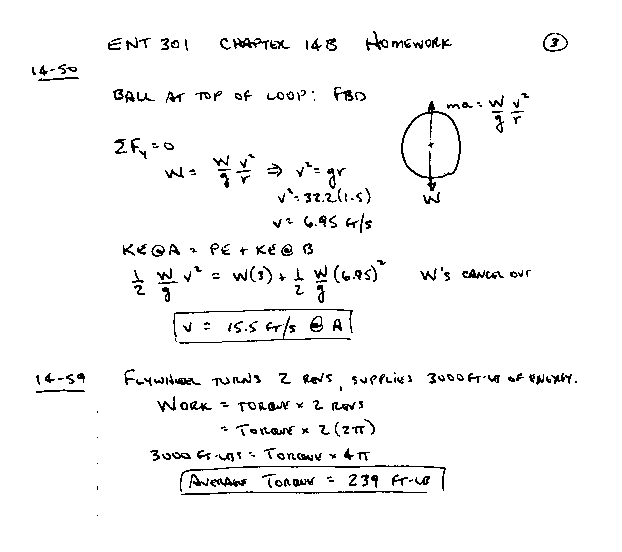 ENT 301 CHAPTER 14B HOMEWORK 3
14-50
BALL AT TOP OF LOOP: FBD
ma = W/g v²/r
ΣFy = 0
W = W/g v²/r ⇒ v² = gr
W
v² = 32.2(1.5)
v = 6.95 FT/S
KE @ A = PE + KE @ B
1/2 W/g v² = W(3) + 1/2 W/g (6.95)² W'S CANCEL OUT
v = 15.5 FT/S @ A
14-59 FLYWHEEL TURNS 2 REVS, SUPPLIES 3000 FT-LB OF ENERGY.
WORK = TORQUE × 2 REVS
= TORQUE × 2(2π)
3000 FT-LBS = TORQUE × 4π
AVERAGE TORQUE = 239 FT-LB